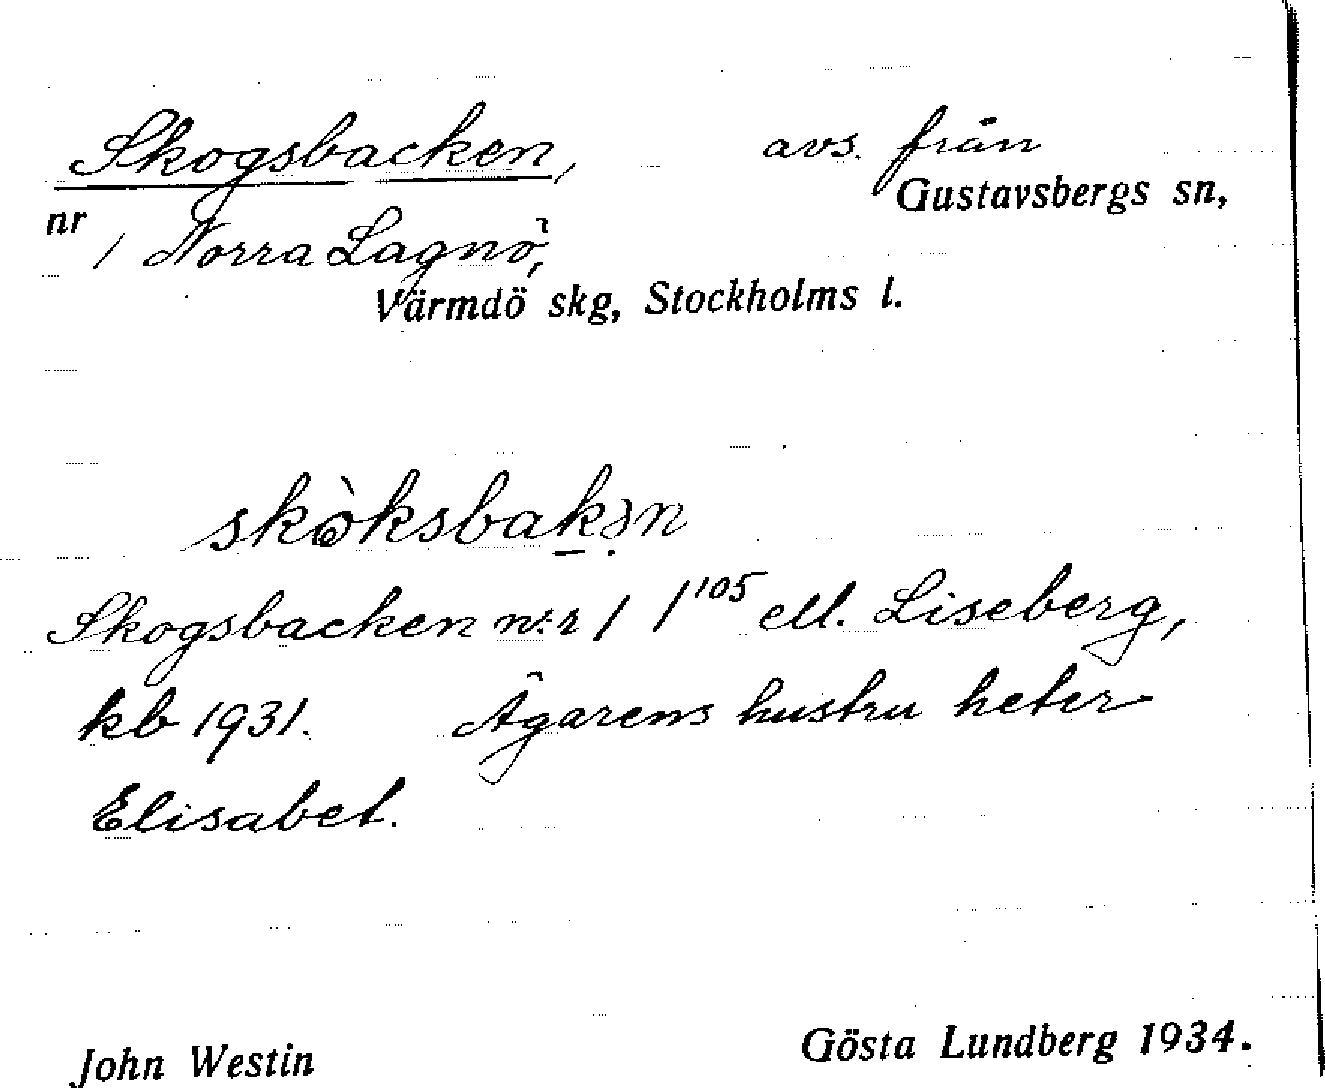 Skogsbacken, avs. från
Gustavsbergs sn,
nr 1 Norra Lagnö,
Värmdö skg, Stockholms l.
skòksbakən
Skogsbacken n:r 1 1¹⁰⁵ ell. Liseberg,
kb 1931. Ägarens hustru heter
Elisabet.
John Westin Gösta Lundberg 1934.